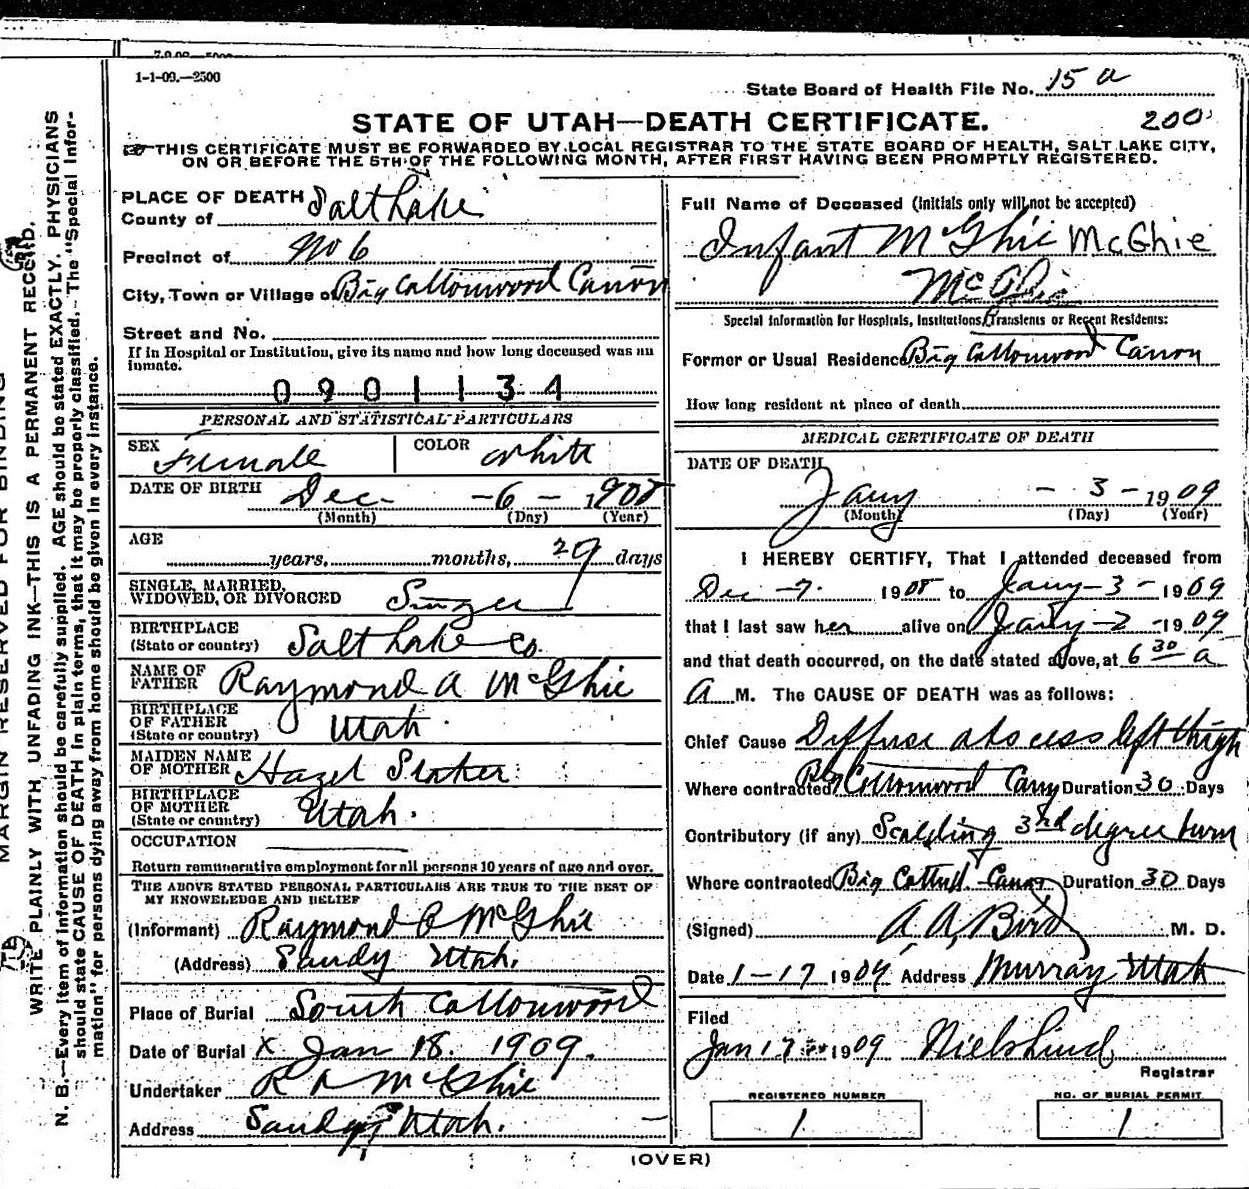 7-9-08—5000
1-1-09.—2500
State Board of Health File No. 15 a
STATE OF UTAH—DEATH CERTIFICATE.
200
THIS CERTIFICATE MUST BE FORWARDED BY LOCAL REGISTRAR TO THE STATE BOARD OF HEALTH, SALT LAKE CITY,
ON OR BEFORE THE 5TH OF THE FOLLOWING MONTH, AFTER FIRST HAVING BEEN PROMPTLY REGISTERED.
PLACE OF DEATH
County of Salt Lake
Precinct of No 6
City, Town or Village of Big Cottonwood Canon
Street and No.
If in Hospital or Institution, give its name and how long deceased was an
inmate.
0901134
PERSONAL AND STATISTICAL PARTICULARS
SEX Female COLOR White
DATE OF BIRTH Dec - 6 - 1908
(Month) (Day) (Year)
AGE
years, months, 29 days
SINGLE, MARRIED,
WIDOWED, OR DIVORCED
BIRTHPLACE
(State or country) Salt Lake Co.
NAME OF
FATHER Raymond A McGhie
BIRTHPLACE
OF FATHER
(State or country) Utah
MAIDEN NAME
OF MOTHER Hazel
BIRTHPLACE
OF MOTHER
(State or country) Utah.
OCCUPATION
Return remunerative employment for all persons 10 years of age and over.
THE ABOVE STATED PERSONAL PARTICULARS ARE TRUE TO THE BEST OF
MY KNOWELEDGE AND BELIEF
(Informant) Raymond A McGhie
(Address) Sandy Utah.
Place of Burial South Cottonwood
Date of Burial X Jan 18. 1909.
Undertaker R A McGhie
Address Sandy Utah.
Full Name of Deceased (Initials only will not be accepted)
Infant McGhie McGhie
McGhie
Special Information for Hospitals, Institutions, Transients or Recent Residents:
Former or Usual Residence Big Cottonwood Canon
How long resident at place of death
MEDICAL CERTIFICATE OF DEATH
DATE OF DEATH
Jany - 3 - 1909
(Month) (Day) (Year)
I HEREBY CERTIFY, That I attended deceased from
Dec - 7. 1908 to Jany - 3 - 1909
that I last saw her alive on Jany - 2 - 1909
and that death occurred, on the date stated above, at 6 30 a
A M. The CAUSE OF DEATH was as follows:
Chief Cause Diffuse abscess left thigh
Where contracted Big Cottonwood Cany Duration 30 Days
Contributory (if any) Scalding 3rd degree burn
Where contracted Big Canon Duration 30 Days
(Signed) A. A. Bird M. D.
Date 1-17 1909 Address Murray Utah
Filed
Jan 17 1909
Registrar
REGISTERED NUMBER
1
NO. OF BURIAL PERMIT
1
(OVER)
MARGIN RESERVED FOR BINDING
WRITE PLAINLY WITH UNFADING INK—THIS IS A PERMANENT RECORD.
N. B.—Every item of information should be carefully supplied. AGE should be stated EXACTLY. PHYSICIANS
should state CAUSE OF DEATH in plain terms, that it may be properly classified. The "Special Infor-
mation" for persons dying away from home should be given in every instance.